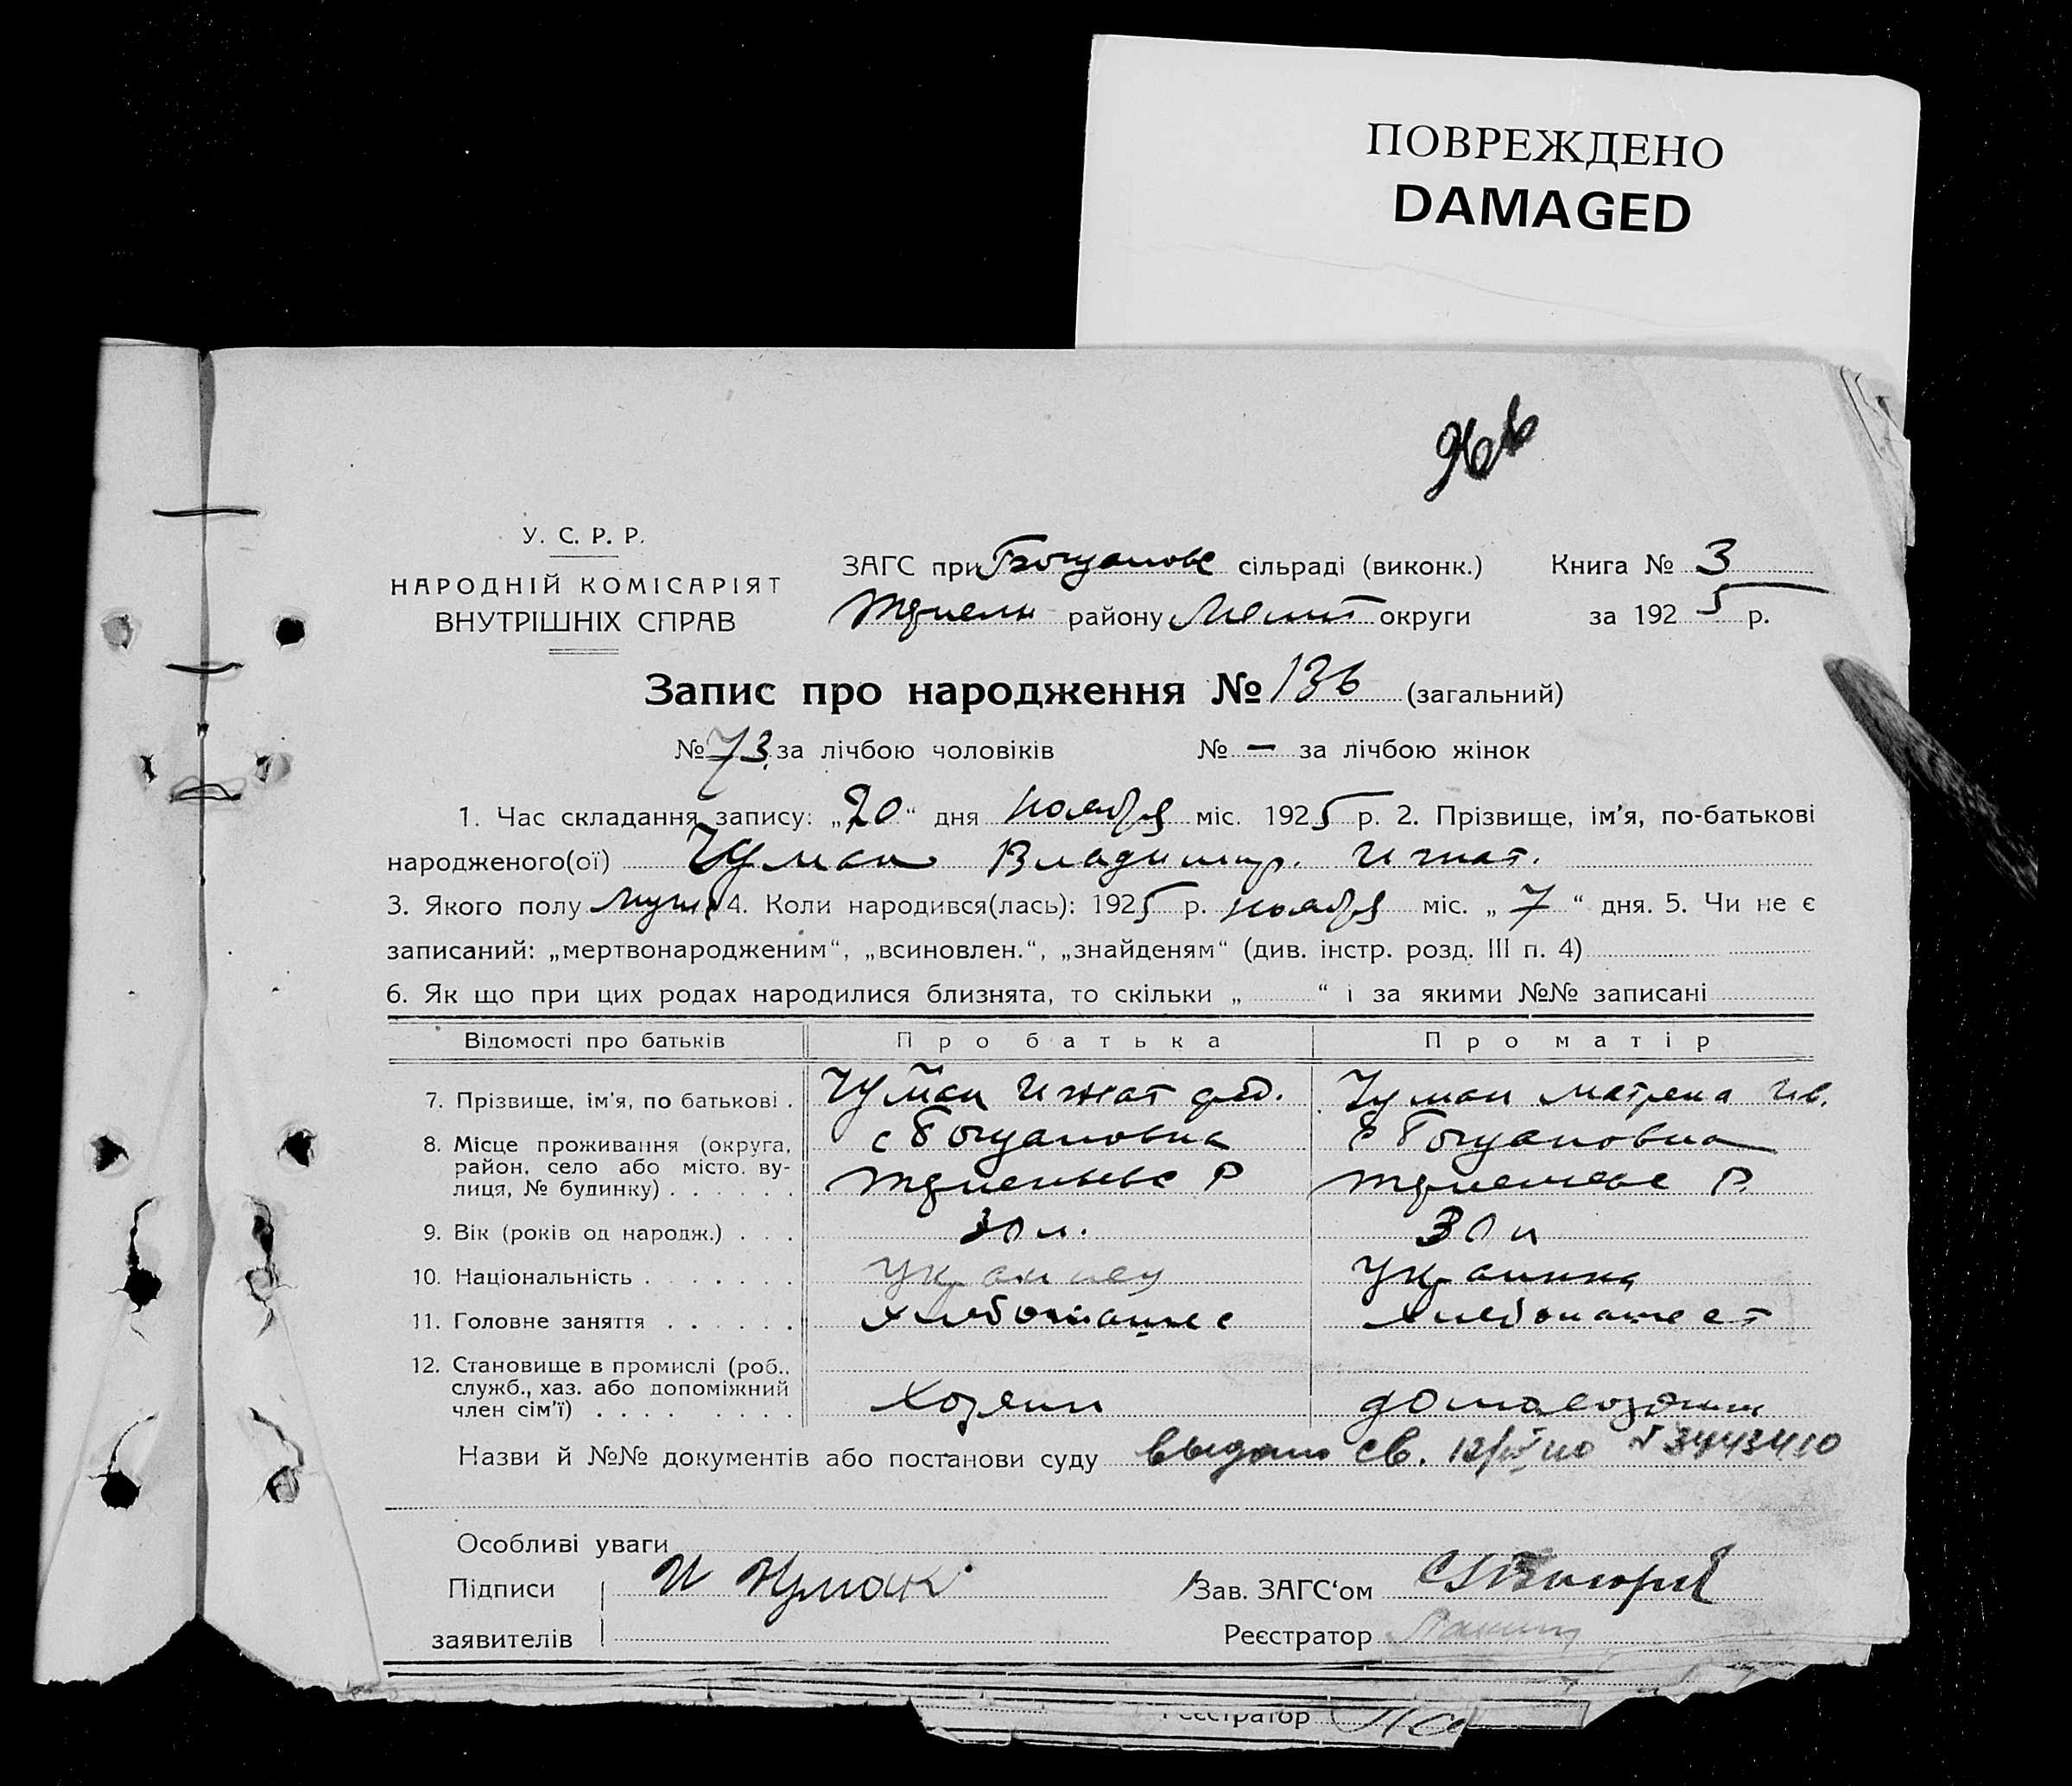 ПОВРЕЖДЕНО
DAMAGED
У. С. Р. Р.
НАРОДНІЙ КОМІСАРІЯТ
ВНУТРІШНІХ СПРАВ
ЗАГС при Богданов сільраді (виконк.) Книга № 3
району Мелит округи за 1925 р.
Запис про народження № 136 (загальний)
№ 73 за лічбою чоловіків № — за лічбою жінок
1. Час складання запису: „20“ дня ноября міс. 1925 р. 2. Прізвище, ім'я, по-батькові
народженого(ої) Чумак Владимир. Игнат.
3. Якого полу муж 4. Коли народився(лась): 1925 р. ноября міс. „7“ дня. 5. Чи не є
записаний: „мертвонародженим“, „всиновлен.“, „знайденям“ (див. інстр. розд. III п. 4)
6. Як що при цих родах народилися близнята, то скільки „ “ і за якими №№ записані
Відомості про батьків Про батька Про матір
7. Прізвище, ім'я, по батькові . Чумак Игнат фед. Чумак Матрена Ив.
8. Місце проживання (округа, с Богдановка с Богдановка
район, село або місто, ву-
лиця, № будинку) . . . . . . Р Р.
9. Вік (років од народж.) . . . 30 л. 30 л
10. Національність . . . . . . . украинец украинка
11. Головне заняття . . . . . . хлебопашес хлебопашест
12. Становище в промислі (роб.,
служб., хаз. або допоміжний
член сім'ї) . . . . . . . . . хозяин домохозяин
Назви й №№ документів або постанови суду выдано св. № 3443410
Особливі уваги
Підписи И Чумак Зав. ЗАГС‘ом
заявителів Реєстратор
Реєстратор